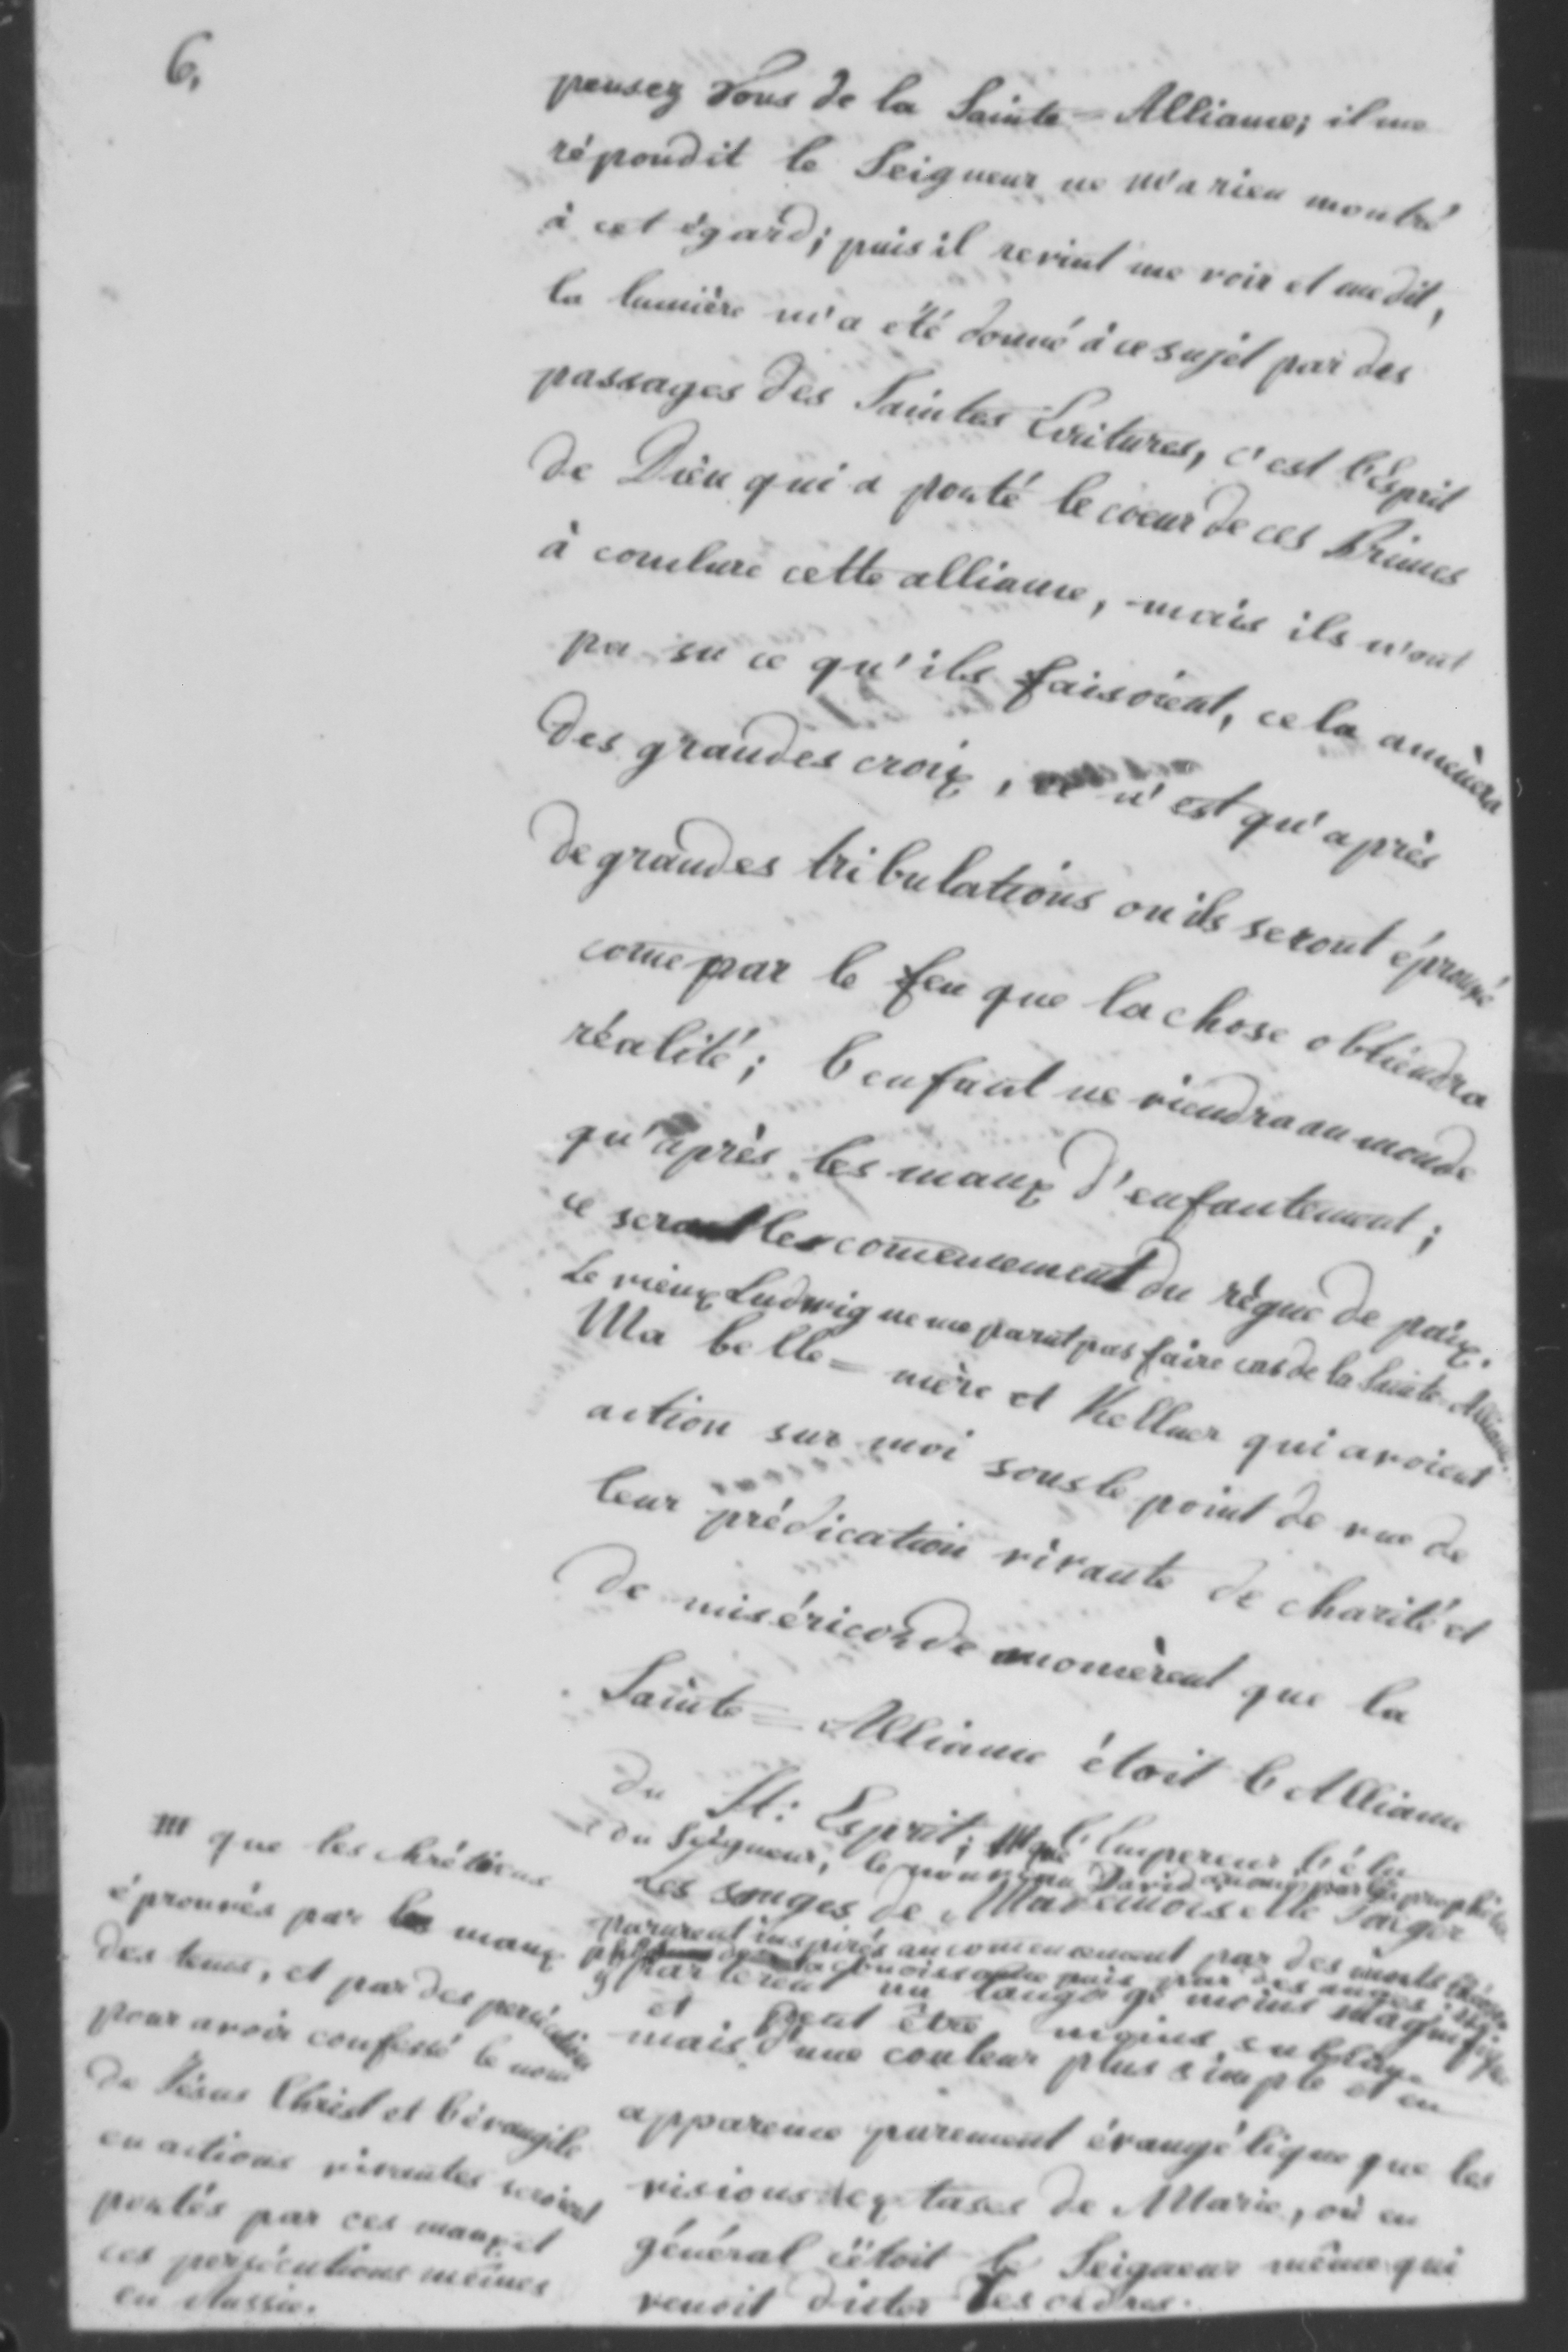 6.
pensez Vous de la Sainte=Alliance; il me
répondit le Seigneur ne m'a rien montré
à cet égard; puis il revint me voir et me dit,
la lumière m'a été donné à ce sujet par des
passages des Saintes Ecritures, c'est l'Esprit
de Dieu qui a porté le coeur de ces Princes
à conclure cette alliance, mais ils n'ont
pa su ce qu'ils faisoient, cela amènera
des grandes croix, ce n'est qu'après
de grandes tribulations ou ils seront éprouvé
come par le feu que la chose obtiendra
réalité; l'enfant ne viendra au monde
qu'après les maux d'enfantement;
ce sera le comencement du règne de paix.
Le vieux Ludwig ne me parut pas faire cas de la Sainte-Alliance.
Ma belle=mère et Kellner qui avoient
action sur moi sous le point de vue de
leur prédication vivante de charité et
de miséricorde anoncèrent que la
Sainte=Alliance étoit l'Alliance
du St: Esprit; que l'Empereur l'élu
du Seigneur, le nouveau David anoncé par les prophètes
Les songes de Mademoiselle Jaeger
parurent inspirés au comencement par des morts
conoissance puis par des anges;
parlèrent un langage moins magnifique
et peut être moins sublime
mais d'une couleur plus simple et en
apparence purement évangélique que les
visions de Marie, où en
général c'étoit le Seigneur même qui
venoit dicter Ses ordres.
que les chrétiens
éprouvés par les maux
des tems, et par des persécutions
pour avoir confessé le nom
de Jésus Christ et l'évangile
en actions vivantes seroient
portés par ces maux et
ces persécutions mêmes
en Russie.